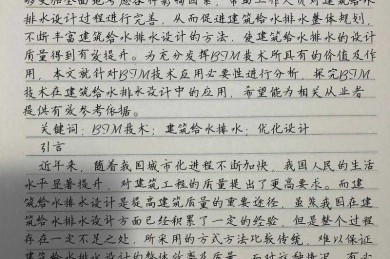 够更加全面地考虑各种影响因素，帮助工作人员对建筑给
水排水设计过程进行完善，从而促进建筑给水排水整体规划，
不断丰富建筑给水排水设计的方法，使建筑给水排水的设计
质量得到有效提升。为充分发挥BIM技术所具有的价值及作
用，本文就针对BIM技术应用必要性进行分析，探究BIM
技术在建筑给水排水设计中的应用，希望能为相关从业者
提供有效参考依据。
关键词：BIM技术；建筑给水排水；优化设计
引言
近年来，随着我国城市化进程不断加快，我国人民的生活
水平显著提升，对建筑工程的质量提出了更高要求。而建
筑给水排水设计是提高建筑质量的重要途径，虽然我国在建
筑给水排水设计方面已经积累了一定的经验，但是整个过程
存在一定不足之处，所采用的方式方法比较传统，难以保证
建筑给水排水设计的整体效率及质量。面对这种情况，有必